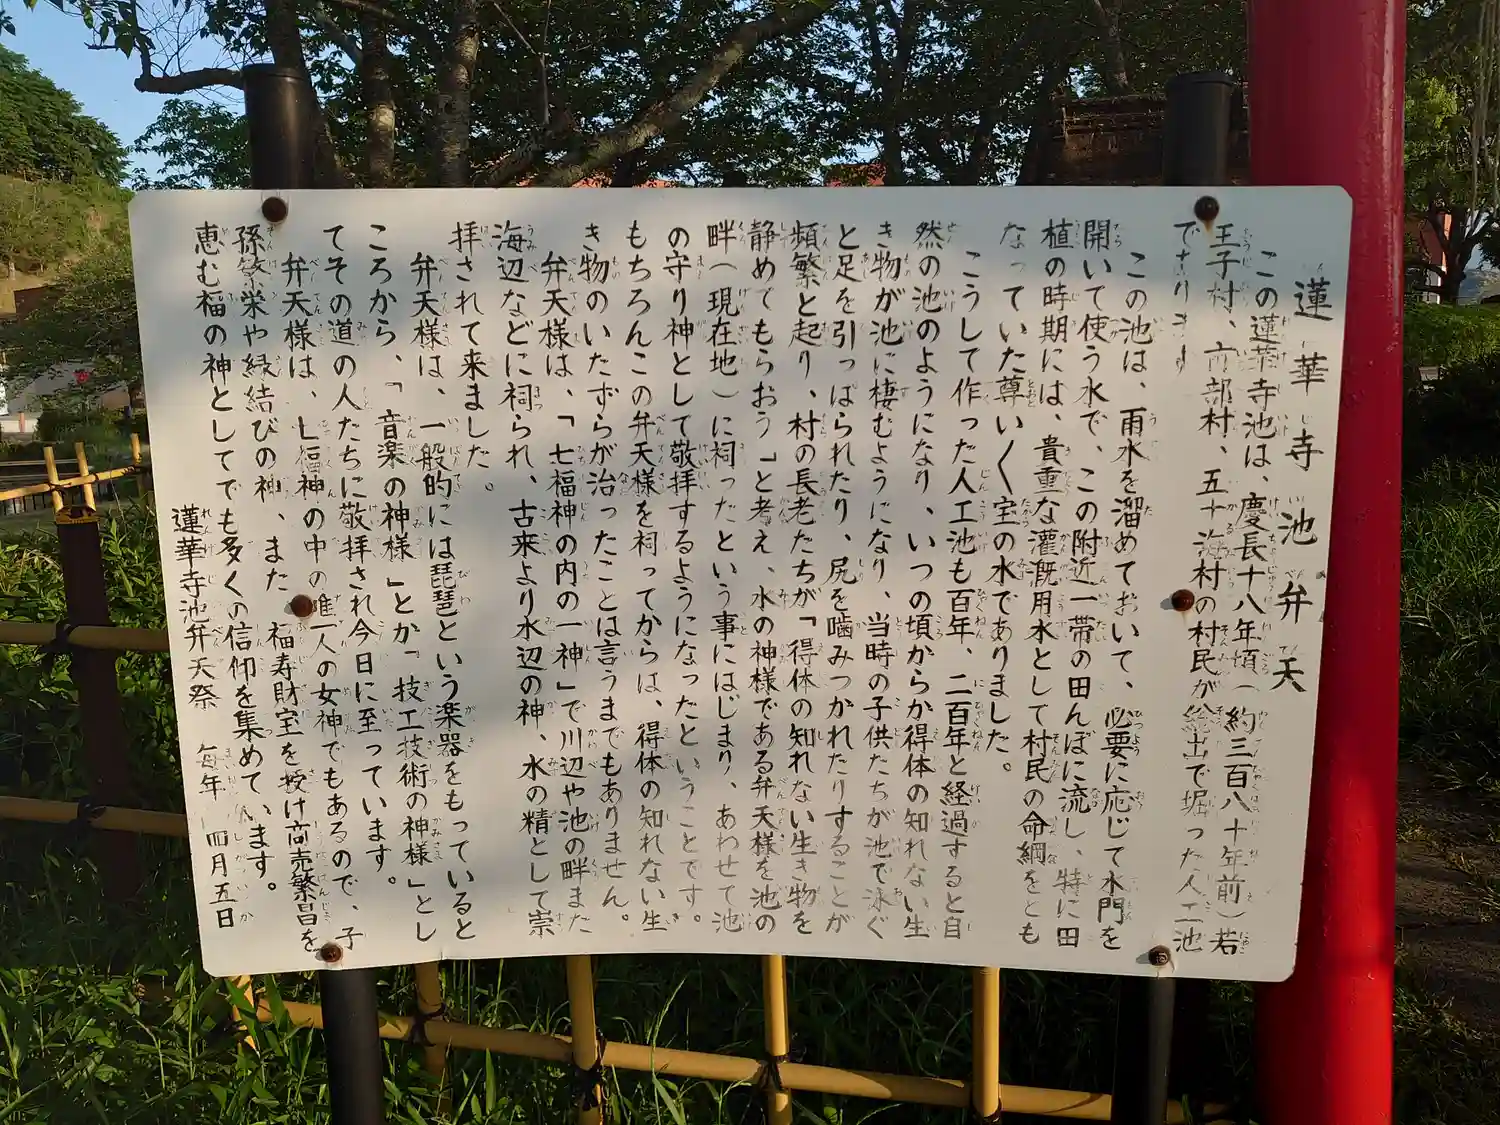 蓮華寺池弁天
この蓮華寺池は、慶長十八年頃(約三百八十年前)若
王子村、市部村、五十海村の村民が総出で堀った人工池
であります
この池は、雨水を溜めておいて、必要に応じて水門を
開いて使う水で、この附近一帯の田んぼに流し、特に田
植の時期には、貴重な灌漑用水として村民の命綱をとも
なっていた尊いく宝の水でありました。
こうして作った人工池も百年、二百年と経過すると自
然の池のようになり、いつの頃からか得体の知れない生
き物が池に棲むようになり、当時の子供たちが池で泳ぐ
と足を引っぱられたり、尻を噛みつかれたりすることが
頻繁と起り、村の長老たちが「得体の知れない生き物を
静めてもらおう「と考え、水の神様である弁天様を池の
畔(現在地)に祠ったという事にはじまり、あわせて池
の守り神として敬拝するようになったということです。
もちろんこの弁天様を祠ってからは、得体の知れない生
き物のいたずらが治ったことは言うまでもありません。
弁天様は、「七福神の内の一神」で川辺や池の畔また
海辺などに祠られ、古来より水辺の神、水の精として崇
拝されて来ました。
弁天様は、一般的には琵琶という楽器をもっていると
ころから、「音楽の神様」とか「技工技術の神様」とし
てその道の人たちに敬拝され今日に至っています。
弁天様は、七福神の中の唯一人の女神でもあるので、子
孫繁栄や縁結びの神、また、福寿財宝を授け商売繁昌を
恵む福の神としてでも多くの信仰を集めています。
蓮華寺池弁天祭 毎年 四月五日